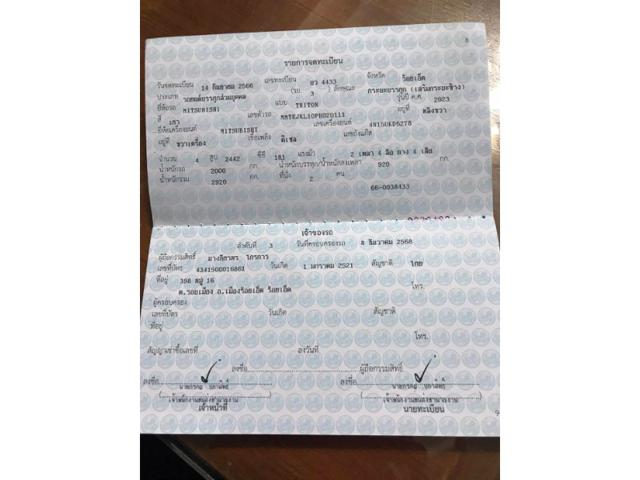 8
รายการจดทะเบียน
วันจดทะเบียน 14 กันยายน 2566 เลขทะเบียน 4433 จังหวัด ร้อยเอ็ด
ประเภท รถยนต์บรรทุกส่วนบุคคล (รย 3 ) ลักษณะ กระบะบรรทุก
ยี่ห้อรถ MITSUBISHI แบบ TRITON รุ่นปี ค.ศ. 2023
สี เทา เลขตัวรถ อยู่ที่
ยี่ห้อเครื่องยนต์ MITSUBISHI เลขเครื่องยนต์ 4N15UKD6278
อยู่ที่ ขวาเครื่อง เชื้อเพลิง ดีเซล เลขถังแก๊ส
จำนวน 4 สูบ 2442 ซีซี 181 แรงม้า 2 เพลา 4 ล้อ ยาง 4 เส้น
น้ำหนักรถ 2000 กก. น้ำหนักบรรทุก/น้ำหนักลงเพลา 920 กก.
น้ำหนักรวม 2920 กก. ที่นั่ง 2 คน
66-0938433
เจ้าของรถ
ลำดับที่ 3 วันที่ครอบครองรถ 8 ธันวาคม 2568
ผู้ถือกรรมสิทธิ์
เลขที่บัตร 4341500016881 วันเกิด 1 มกราคม 2521 สัญชาติ ไทย
ที่อยู่ 398 หมู่ 16
ต.รอบเมือง อ.เมืองร้อยเอ็ด ร้อยเอ็ด โทร.
ผู้ครอบครอง
เลขที่บัตร วันเกิด สัญชาติ
ที่อยู่
โทร.
สัญญาเช่าซื้อเลขที่ ลงวันที่
ลงชื่อ ผู้ถือกรรมสิทธิ์
ลงชื่อ ลงชื่อ
เจ้าหน้าที่ นายทะเบียน
9